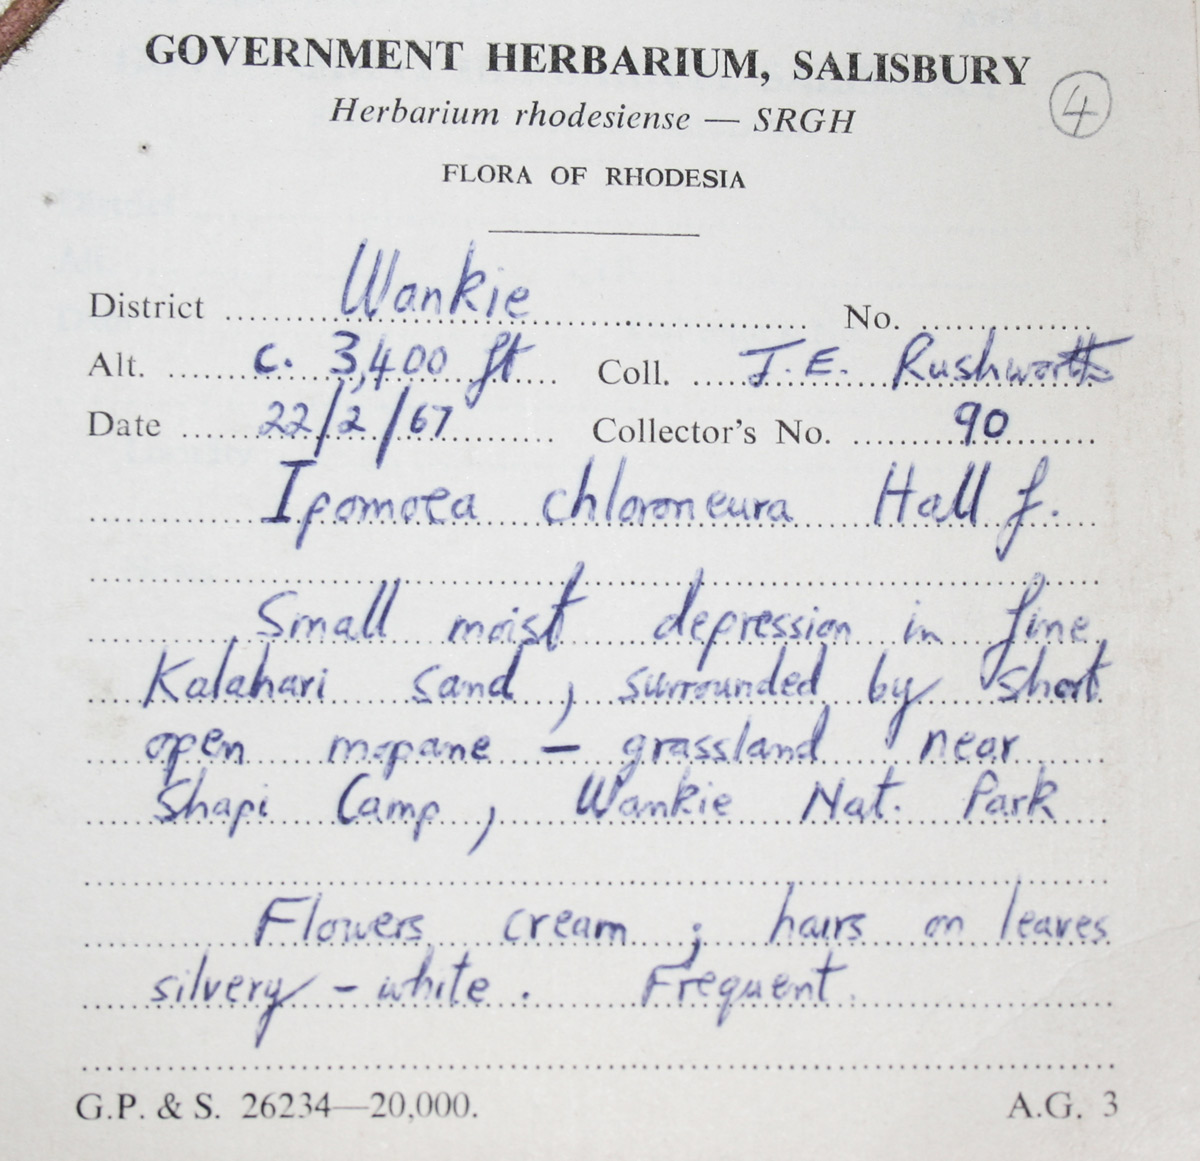 GOVERNMENT HERBARIUM, SALISBURY
Herbarium rhodesiense — SRGH
4
FLORA OF RHODESIA
District Wankie No.
Alt. c. 3,400 ft Coll. J.E. Rushworth
Date 22/2/67 Collector's No. 90
Ipomoea chloroneura Hall f.
Small moist depression in fine
Kalahari sand, surrounded by short
open mopane - grassland near
Shapi Camp, Wankie Nat. Park
Flowers cream; hairs on leaves
silvery-white. Frequent.
G.P. & S. 26234—20,000. A.G. 3